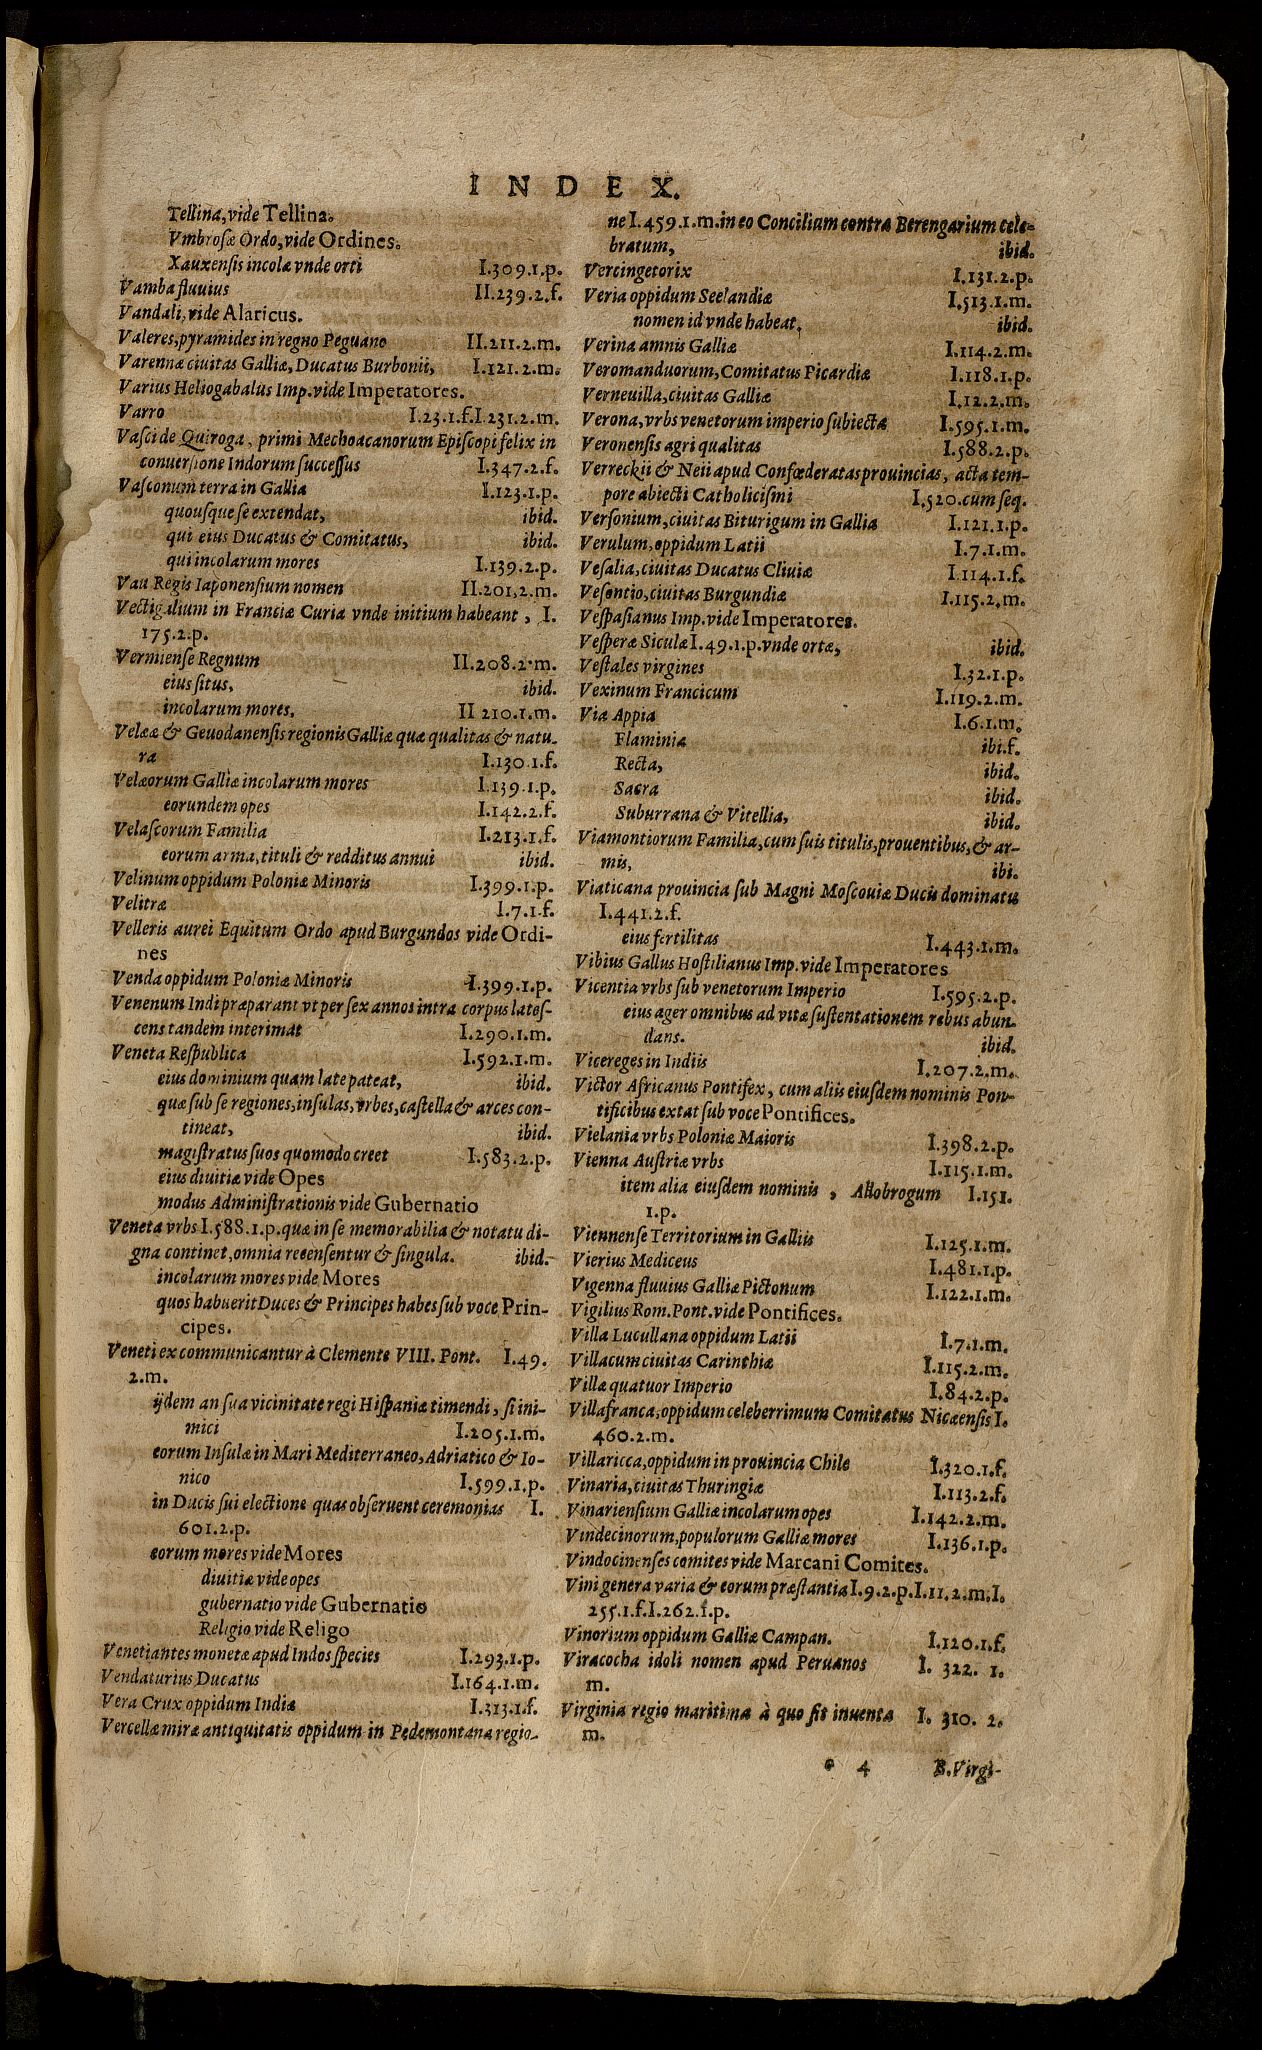 INDEX.
Tellina, vide Tellina.
Vmbrosæ Ordo, vide Ordines.
Xauxensis incolæ vnde orti I.309.1.p.
Vamba fluuius II.239.2.f.
Vandali, vide Alaricus.
Valeres, pyramides in regno Peguano II.211.2.m.
Varennæ ciuitas Galliæ, Ducatus Burbonii, I.121.2.m.
Varius Heliogabalus Imp. vide Imperatores.
Varro I.23.1.f.I.231.2.m.
Vasci de Quiroga, primi Mechoacanorum Episcopi felix in
conuersione Indorum successus I.347.2.f.
Vasconum terra in Gallia I.123.1.p.
quousque se extendat, ibid.
qui eius Ducatus & Comitatus, ibid.
qui incolarum mores I.139.2.p.
Vau Regis Iaponensium nomen II.201,2.m.
Vectigalium in Franciæ Curia vnde initium habeant, I.
175.2.p.
Vermiense Regnum II.208.2.m.
eius situs, ibid.
incolarum mores. II 210.1.m.
Velææ & Geuodanensis regionis Galliæ quæ qualitas & natu-
ra I.130.1.f.
Velæorum Galliæ incolarum mores I.139.1.p.
eorundem opes I.142.2.f.
Velascorum Familia I.213.1.f.
eorum arma, tituli & redditus annui ibid.
Velinum oppidum Poloniæ Minoris I.399.1.p.
Velitræ I.7.1.f.
Velleris aurei Equitum Ordo apud Burgundos vide Ordi-
nes
Venda oppidum Poloniæ Minoris I.399.1.p.
Venenum Indi præparant vt per sex annos intra corpus lates-
cens tandem interimat I.290.1.m.
Veneta Respublica I.592.1.m.
eius dominium quam late pateat, ibid.
quæ sub se regiones, insulas, vrbes, castella & arces con-
tineat, ibid.
magistratus suos quomodo creet I.583.2.p.
eius diuitiæ vide Opes
modus Administrationis vide Gubernatio
Veneta vrbs I.588.1.p. quæ in se memorabilia & notatu di-
gna continet, omnia recensentur & singula. ibid.
incolarum mores vide Mores
quos habuerit Duces & Principes habes sub voce Prin-
cipes.
Veneti excommunicantur à Clemente VIII. Pont. I.49.
2.m.
ijdem an sua vicinitate regi Hispaniæ timendi, si ini-
mici I.205.1.m.
eorum Insulæ in Mari Mediterraneo, Adriatico & Io-
nico I.599.1.p.
in Ducis sui electione quas obseruent ceremonias I.
601.2.p.
eorum mores vide Mores
diuitiæ vide opes
gubernatio vide Gubernatio
Religio vide Religo
Venetiantes monetæ apud Indos species I.293.1.p.
Vendaturius Ducatus I.164.1.m.
Vera Crux oppidum Indiæ I.313.1.f.
Vercellæ miræ antiquitatis oppidum in Pedemontana regio-
ne I.459.1.m. in eo Concilium contra Berengarium cele-
bratum, ibid.
Vercingetorix I.131.2.p.
Veria oppidum Seelandiæ I.513.1.m.
nomen id vnde habeat, ibid.
Verina amnis Galliæ I.114.2.m.
Veromanduorum, Comitatus Picardiæ I.118.1.p.
Verneuilla, ciuitas Galliæ I.12.2.m.
Verona, vrbs venetorum imperio subiecta I.595.1.m.
Veronensis agri qualitas I.588.2.p.
Verreckii & Neii apud Confœderatas prouincias, acta tem-
pore abiecti Catholicismi I.520.cum seq.
Versonium, ciuitas Biturigum in Gallia I.121.1.p.
Verulum, oppidum Latii I.7.1.m.
Vesalia, ciuitas Ducatus Cliuiæ I.114.1.f.
Vesontio, ciuitas Burgundiæ I.115.2.m.
Vespasianus Imp. vide Imperatores.
Vesperæ Siculæ I.49.1.p. vnde ortæ, ibid.
Vestales virgines I.32.1.p.
Vexinum Francicum I.119.2.m.
Via Appia I.6.1.m.
Flaminia ibi.f.
Recta, ibid.
Sacra ibid.
Suburrana & Vitellia, ibid.
Viamontiorum Familia, cum suis titulis, prouentibus, & ar-
mis, ibi.
Viaticana prouincia sub Magni Moscouiæ Ducis dominatu
I.441.2.f.
eius fertilitas I.443.1.m.
Vibius Gallus Hostilianus Imp. vide Imperatores
Vicentia vrbs sub venetorum Imperio I.595.2.p.
eius ager omnibus ad vitæ sustentationem rebus abun-
dans. ibid.
Vicereges in Indiis I.207.2.m.
Victor Africanus Pontifex, cum aliis eiusdem nominis Pon-
tificibus extat sub voce Pontifices.
Vielania vrbs Poloniæ Maioris I.398.2.p.
Vienna Austriæ vrbs I.115.1.m.
item alia eiusdem nominis, Allobrogum I.151.
1.p.
Viennense Territorium in Galliis I.125.1.m.
Vierius Mediceus I.481.1.p.
Vigenna fluuius Galliæ Pictonum I.122.1.m.
Vigilius Rom. Pont. vide Pontifices.
Villa Lucullana oppidum Latii I.7.1.m.
Villacum ciuitas Carinthiæ I.115.2.m.
Villæ quatuor Imperio I.84.2.p.
Villafranca, oppidum celeberrimum Comitatus Nicæensis I.
460.2.m.
Villaricca, oppidum in prouincia Chile I.320.1.f.
Vinaria, ciuitas Thuringiæ I.113.2.f.
Vinariensium Galliæ incolarum opes I.142.2.m.
Vindecinorum, populorum Galliæ mores I.136.1.p.
Vindocinenses comites vide Marcani Comites.
Vini genera varia & eorum præstantia I.9.2.p.I.11.2.m.I.
255.1.f.I.262.1.p.
Vinorium oppidum Galliæ Campan. I.120.1.f.
Viracocha idoli nomen apud Peruanos I. 322. 1.
m.
Virginia regio maritima à quo sit inuenta I. 310. 2.
m.
* 4 B. Virgi-